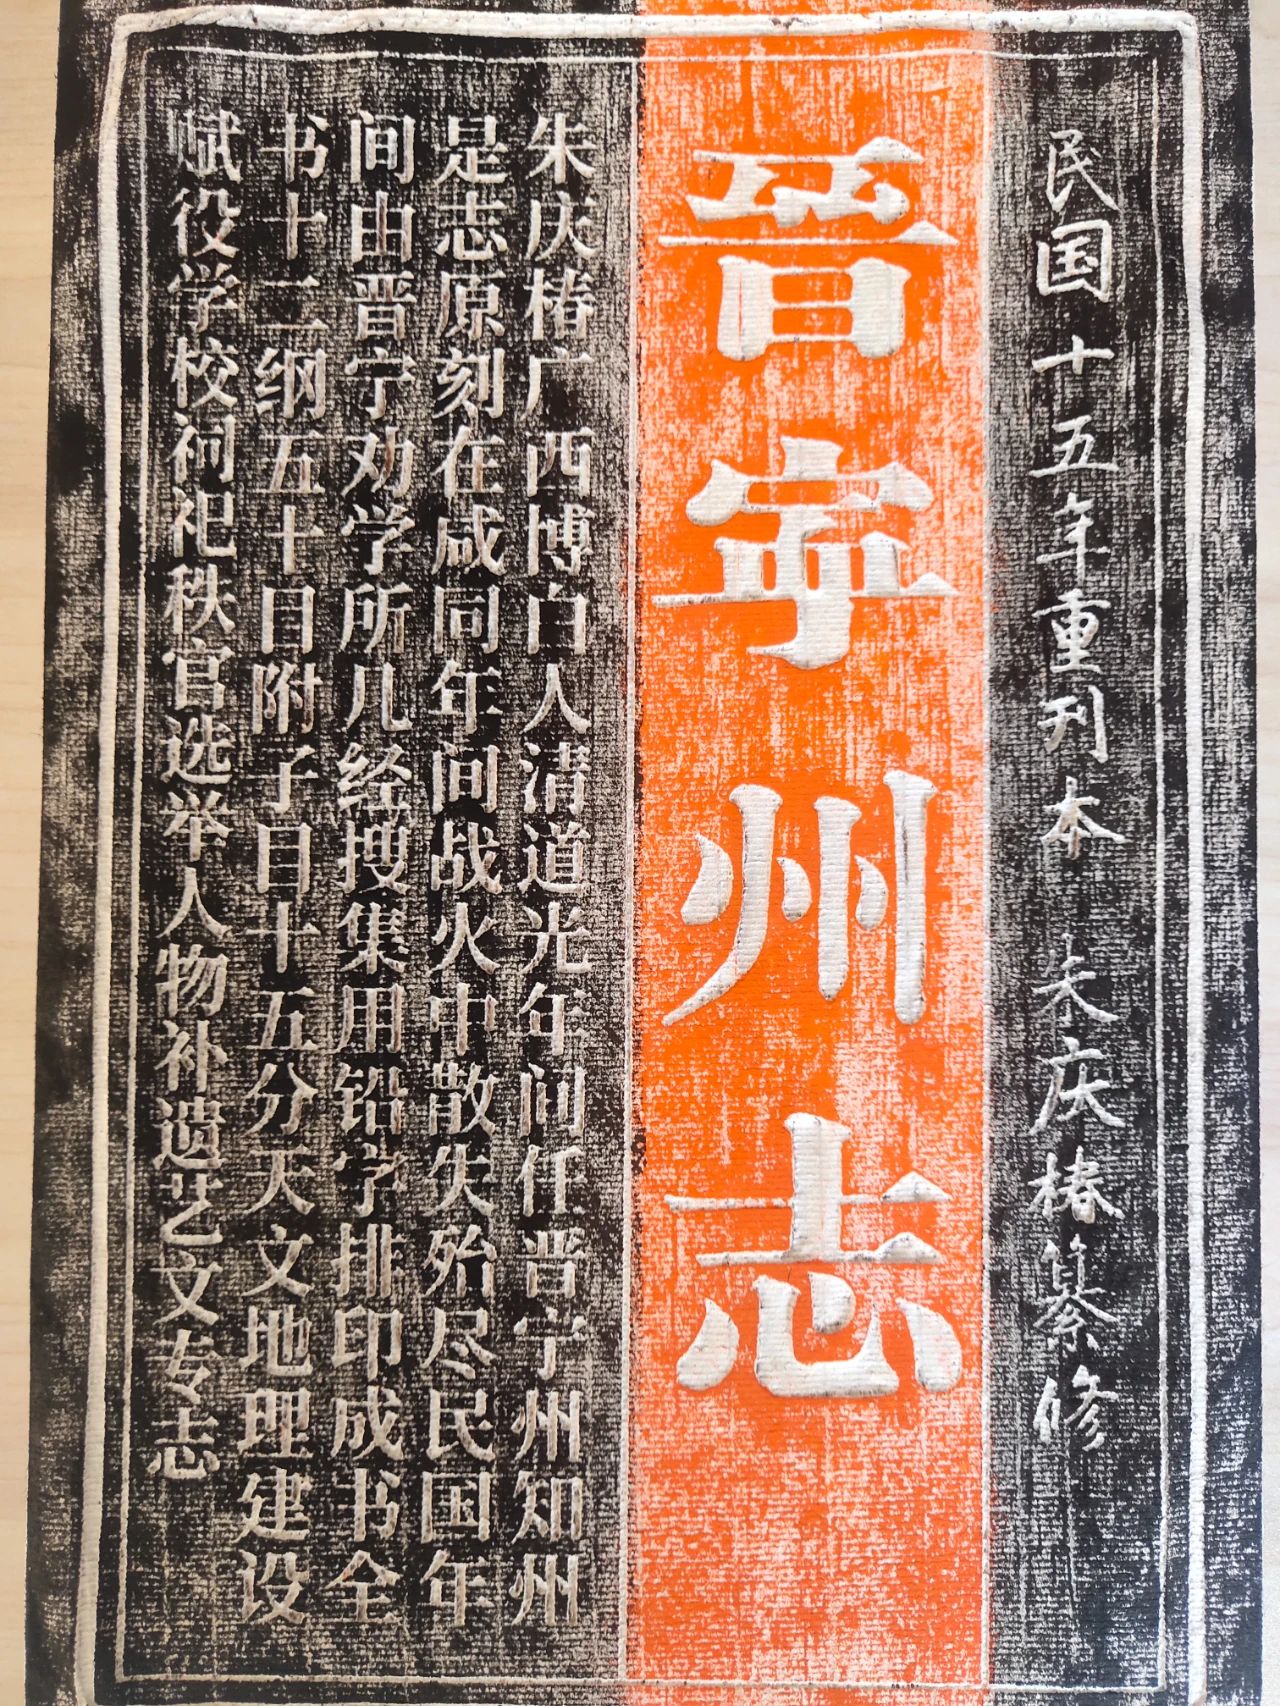 民国十五年重刊本 朱庆椿纂修
晋宁州志
朱庆椿广西博白人清道光年间任晋宁州知州
是志原刻在咸同年间战火中散失殆尽民国年
间由晋宁劝学所几经搜集用铅字排印成书全
书十二纲五十目附子目十五分天文地理建设
赋役学校祠祀秩官选举人物补遗艺文专志